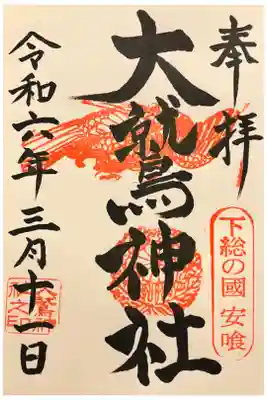 奉拝
下総の國 安喰
大鷲神社
令和六年三月十一日